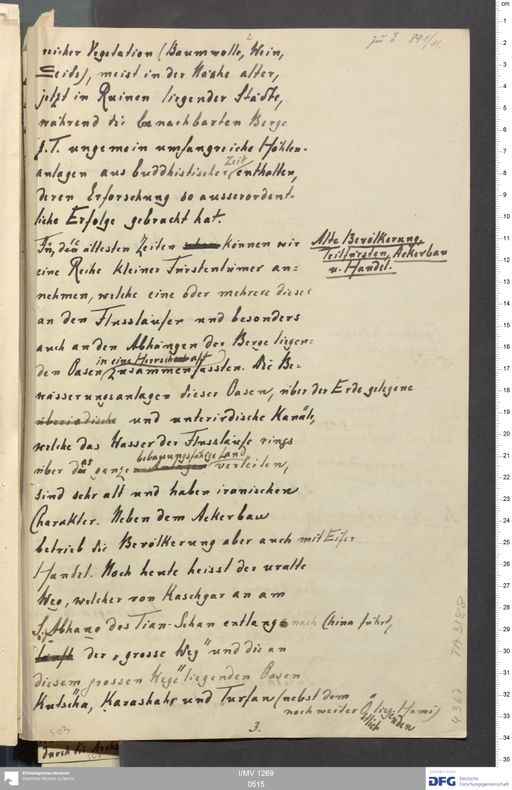 zu E 891/11.
reicher Vegetation (Baumwolle, Wein,
Seide), meist in der Nähe alter,
jetzt in Ruinen liegender Städte,
während die benachbarten Berge
z.T. ungemein umfangreiche Höhlen-
anlagen aus buddhistischer Zeit enthalten,
deren Erforschung so ausserordent-
liche Erfolge gebracht hat.
In den ältesten Zeiten können wir
Alte Bevölkerung,
Teilfürsten, Ackerbau
u. Handel.
eine Reihe kleiner Fürstentümer an-
nehmen, welche eine oder mehrere dieser
an den Flussläufen und besonders
auch an den Abhängen der Berge liegen-
den Oasen in eine Herrschaft zusammenfassten. Die Be-
wässerungsanlagen dieser Oasen, über der Erde gelegene
und unterirdische Kanäle,
welche das Wasser der Flussläufe rings
über das ganze bebauungsfähige Land verteilen,
sind sehr alt und haben iranischen
Charakter. Neben dem Ackerbau
betrieb die Bevölkerung aber auch mit Eifer
Handel. Noch heute heisst der uralte
Weg, welcher von Kaschgar an am
S. Abhang des Tian-Schan entlang nach China führt,
der „grosse Weg" und die an
diesem grossen Wege liegenden Oasen
Kutscha, Karaschahr und Turfan (nebst dem
noch weiter östlich liegenden Hami)
3.
503
TA 3188
4362
durch die
I/MV 1269
0515
Ethnologisches Museum
Staatliche Museen zu Berlin
Gefördert durch
DFG Deutsche
Forschungsgemeinschaft